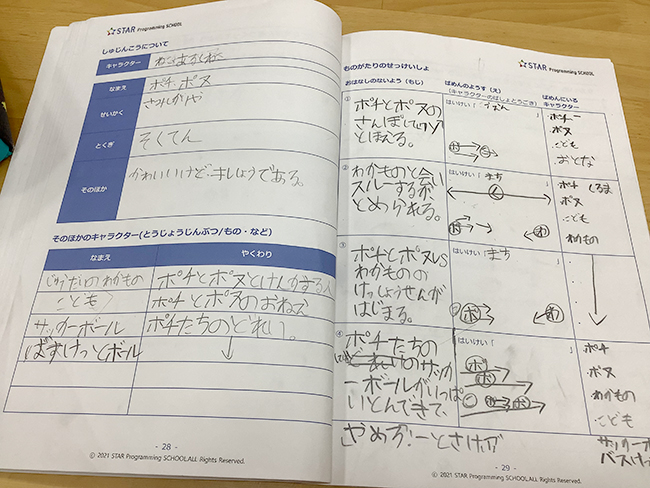 STAR Programming SCHOOL
しゅじんこうについて
キャラクター
なまえ ポチ ポヌ
せいかく
とくぎ そくてん
そのほか かわいいけど、きしょうである。
そのほかのキャラクター(とうじょうじんぶつ/もの・など)
なまえ やくわり
わかもの ポチとポヌとけんかする人
こども ポチとポヌのおねえ
サッカーボール ポチたちのどれい。
ばすけっとボール ↓
- 28 -
© 2021 STAR Programming SCHOOL.ALL Rights Reserved.
STAR Programming SCHOOL
ものがたりのせっけいしょ
おはなしのないよう(もじ) ばめんのようす(え) ばめんにいる
(キャラクターのばしょとうごき) キャラクター
① ポチとポヌの はいけい「 」 ポチ
さんぽ ポヌ
とほえる。 こども
おとな
② わかものと会い はいけい「まち 」 ポチ くるま
スルーするが ポヌ
とめられる。 こども
わかもの
③ ポチとポヌVS はいけい「まち 」
わかものの
けっしょうせんが
はじまる。
④ ポチたちの はいけい「 」 ポチ
サッカ ポヌ
ーボールがいっぱ わかもの
いとんできて、 こども
やめろ!ーとさけぶ
- 29 -
© 2021 STAR Programming SCHOOL.ALL Rights Reserved.